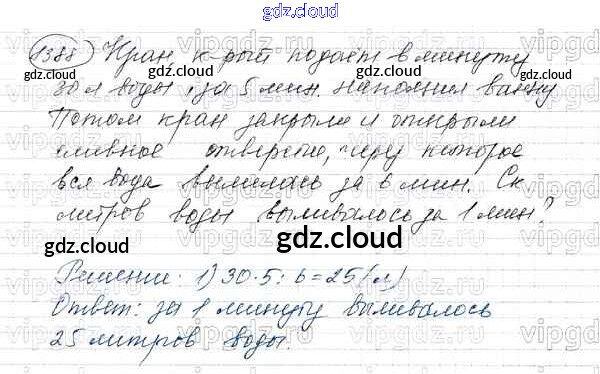 gdz.cloud
1388 Кран, к-рый подаёт в минуту
gdz.cloud gdz.cloud gdz.cloud
30 л воды, за 5 мин. наполнил ванну
Потом кран закрыли и открыли
сливное отверстие, через которое
вся вода вылилась за 6 мин. Ск
gdz.cloud gdz.cloud
литров воды выливалось за 1 мин?
gdz.cloud gdz.cloud
Решение: 1) 30·5:6=25(л)
Ответ: за 1 минуту выливалось
25 литров воды.
gdz.cloud